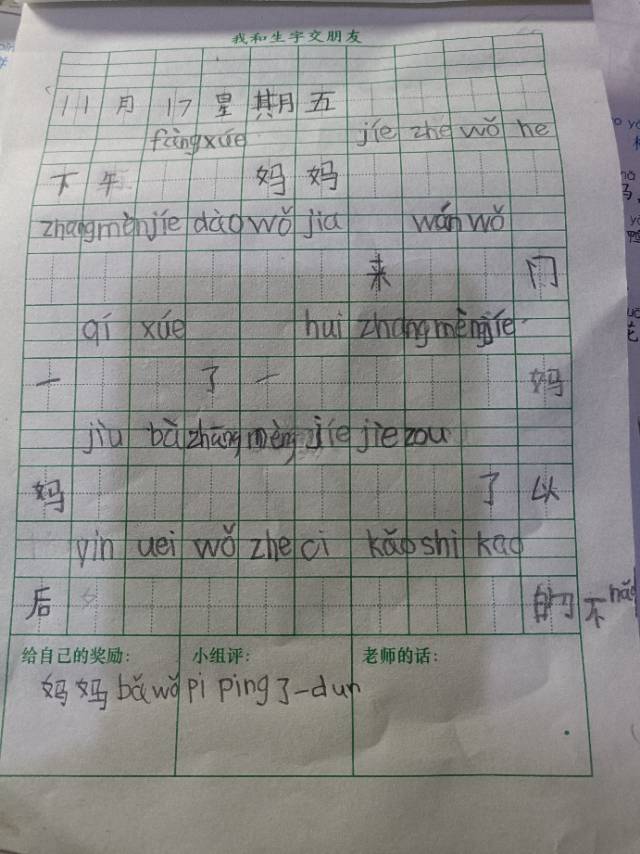 我和生字交朋友
11月17星期五
fàngxúe jíe zhe wǒ he
下午 妈妈
zhangmènjíe dào wǒ jia wán wǒ
来 门
qí xúe hui zhangmèngjíe
一 了一 妈
jiu bǎ zhāng mèng jíe jìe zou
妈 了以
yin uei wǒ zhe ci kǎo shi kao
后 的不hǎo
给自己的奖励: 小组评: 老师的话:
妈妈bǎ wǒ pi ping了一dun